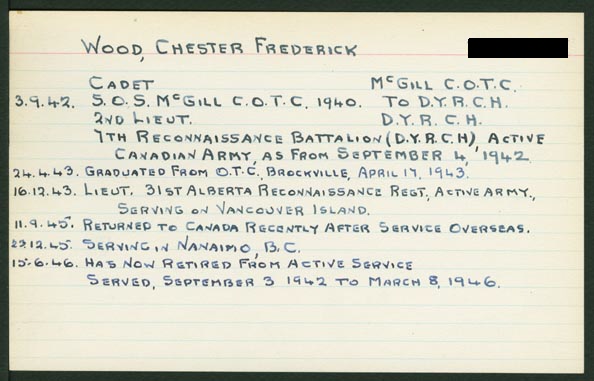 WOOD, CHESTER FREDERICK
CADET McGILL C.O.T.C.
3.9.42. S.O.S. McGILL C.O.T.C. 1940. TO D.Y.R.C.H.
2ND LIEUT. D.Y.R.C.H.
7TH RECONNAISSANCE BATTALION (D.Y.R.C.H), ACTIVE
CANADIAN ARMY, AS FROM SEPTEMBER 4, 1942
24.4.43. GRADUATED FROM O.T.C., BROCKVILLE, APRIL 17, 1943.
16.12.43. LIEUT. 31ST ALBERTA RECONNAISSANCE REGT., ACTIVE ARMY.,
SERVING ON VANCOUVER ISLAND.
11.9.45. RETURNED TO CANADA RECENTLY AFTER SERVICE OVERSEAS.
22.12.45. SERVING IN NANAIMO, B.C.
15.6.46. HAS NOW RETIRED FROM ACTIVE SERVICE
SERVED, SEPTEMBER 3 1942 TO MARCH 8, 1946.